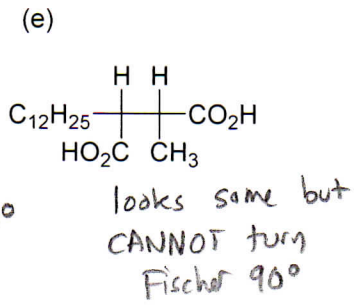 (e)
H H
C₁₂H₂₅ CO₂H
HO₂C CH₃
looks same but
CANNOT turn
Fischer 90°